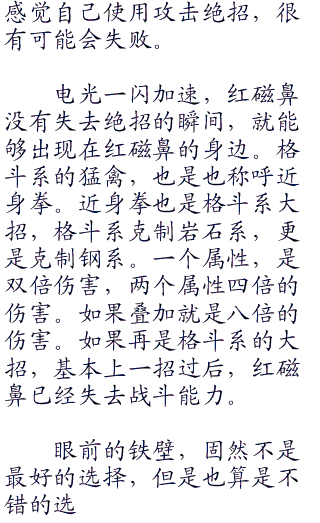 感觉自己使用攻击绝招，很
有可能会失败。
电光一闪加速，红磁鼻
没有失去绝招的瞬间，就能
够出现在红磁鼻的身边。格
斗系的猛禽，也是也称呼近
身拳。近身拳也是格斗系大
招，格斗系克制岩石系，更
是克制钢系。一个属性，是
双倍伤害，两个属性四倍的
伤害。如果叠加就是八倍的
伤害。如果再是格斗系的大
招，基本上一招过后，红磁
鼻已经失去战斗能力。
眼前的铁壁，固然不是
最好的选择，但是也算是不
错的选